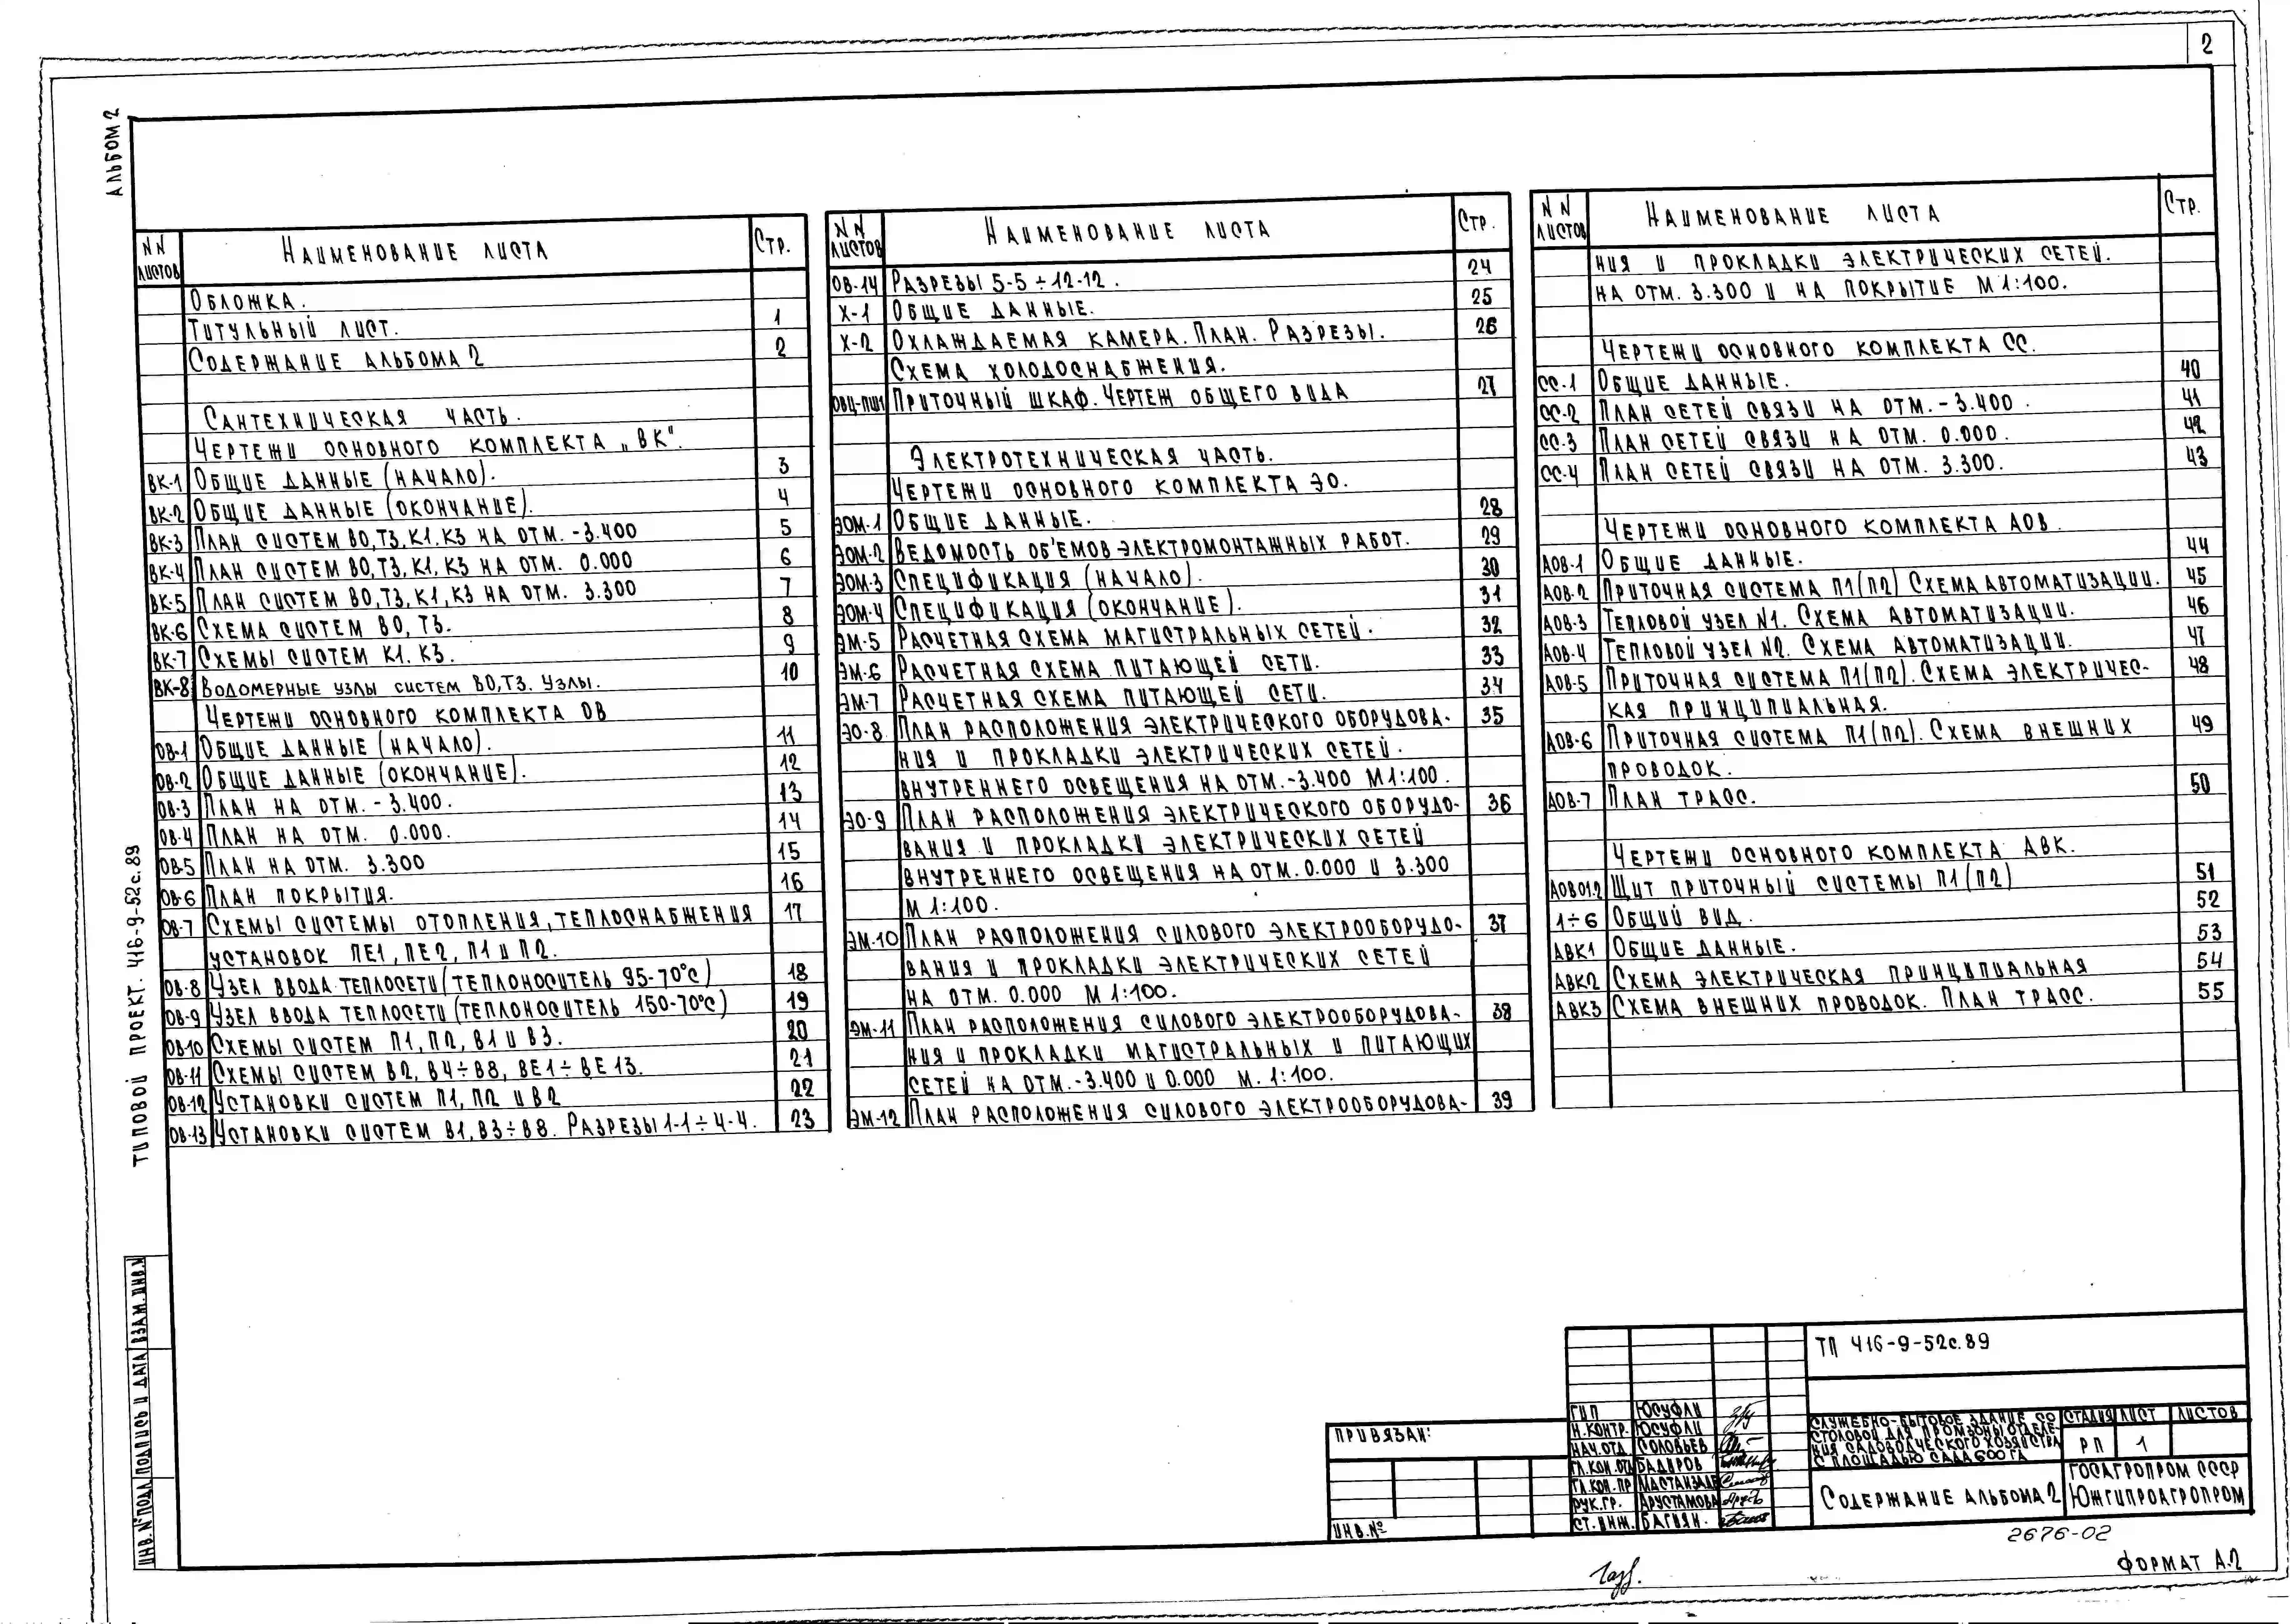 2
АЛЬБОМ 2
ТИПОВОЙ ПРОЕКТ. 416-9-52с.89
ИНВ.№ ПОДЛ. ПОДПИСЬ И ДАТА ВЗАМ.ИНВ.№
NN ЛИСТОВ НАИМЕНОВАНИЕ ЛИСТА СТР.
ОБЛОЖКА.
ТИТУЛЬНЫЙ ЛИСТ. 1
СОДЕРЖАНИЕ АЛЬБОМА 2 2
САНТЕХНИЧЕСКАЯ ЧАСТЬ.
ЧЕРТЕЖИ ОСНОВНОГО КОМПЛЕКТА „ВК".
ВК-1 ОБЩИЕ ДАННЫЕ (НАЧАЛО). 3
ВК-2 ОБЩИЕ ДАННЫЕ (ОКОНЧАНИЕ). 4
ВК-3 ПЛАН СИСТЕМ В0, Т3, К1, К3 НА ОТМ. -3.400 5
ВК-4 ПЛАН СИСТЕМ В0, Т3, К1, К3 НА ОТМ. 0.000 6
ВК-5 ПЛАН СИСТЕМ В0, Т3, К1, К3 НА ОТМ. 3.300 7
ВК-6 СХЕМА СИСТЕМ В0, Т3. 8
ВК-7 СХЕМЫ СИСТЕМ К1. К3. 9
ВК-8 ВОДОМЕРНЫЕ УЗЛЫ СИСТЕМ В0, Т3. УЗЛЫ. 10
ЧЕРТЕЖИ ОСНОВНОГО КОМПЛЕКТА ОВ
ОВ-1 ОБЩИЕ ДАННЫЕ (НАЧАЛО). 11
ОВ-2 ОБЩИЕ ДАННЫЕ (ОКОНЧАНИЕ). 12
ОВ-3 ПЛАН НА ОТМ. -3.400. 13
ОВ-4 ПЛАН НА ОТМ. 0.000. 14
ОВ-5 ПЛАН НА ОТМ. 3.300 15
ОВ-6 ПЛАН ПОКРЫТИЯ. 16
ОВ-7 СХЕМЫ СИСТЕМЫ ОТОПЛЕНИЯ, ТЕПЛОСНАБЖЕНИЯ 17
УСТАНОВОК ПЕ1, ПЕ2, П1 И П2.
ОВ-8 УЗЕЛ ВВОДА ТЕПЛОСЕТИ (ТЕПЛОНОСИТЕЛЬ 95-70°С) 18
ОВ-9 УЗЕЛ ВВОДА ТЕПЛОСЕТИ (ТЕПЛОНОСИТЕЛЬ 150-70°С) 19
ОВ-10 СХЕМЫ СИСТЕМ П1, П2, В1 И В3. 20
ОВ-11 СХЕМЫ СИСТЕМ В2, В4÷В8, ВЕ1÷ВЕ13. 21
ОВ-12 УСТАНОВКИ СИСТЕМ П1, П2 И В2 22
ОВ-13 УСТАНОВКИ СИСТЕМ В1, В3÷В8. РАЗРЕЗЫ 1-1÷4-4. 23
NN ЛИСТОВ НАИМЕНОВАНИЕ ЛИСТА СТР.
ОВ-14 РАЗРЕЗЫ 5-5÷12-12. 24
Х-1 ОБЩИЕ ДАННЫЕ. 25
Х-2 ОХЛАЖДАЕМАЯ КАМЕРА. ПЛАН. РАЗРЕЗЫ. 26
СХЕМА ХОЛОДОСНАБЖЕНИЯ.
ОВЦ-ПШ1 ПРИТОЧНЫЙ ШКАФ. ЧЕРТЕЖ ОБЩЕГО ВИДА 27
ЭЛЕКТРОТЕХНИЧЕСКАЯ ЧАСТЬ.
ЧЕРТЕЖИ ОСНОВНОГО КОМПЛЕКТА ЭО.
ЭОМ-1 ОБЩИЕ ДАННЫЕ. 28
ЭОМ-2 ВЕДОМОСТЬ ОБ'ЕМОВ ЭЛЕКТРОМОНТАЖНЫХ РАБОТ. 29
ЭОМ-3 СПЕЦИФИКАЦИЯ (НАЧАЛО). 30
ЭОМ-4 СПЕЦИФИКАЦИЯ (ОКОНЧАНИЕ). 31
ЭМ-5 РАСЧЕТНАЯ СХЕМА МАГИСТРАЛЬНЫХ СЕТЕЙ. 32
ЭМ-6 РАСЧЕТНАЯ СХЕМА ПИТАЮЩЕЙ СЕТИ. 33
ЭМ-7 РАСЧЕТНАЯ СХЕМА ПИТАЮЩЕЙ СЕТИ. 34
ЭО-8 ПЛАН РАСПОЛОЖЕНИЯ ЭЛЕКТРИЧЕСКОГО ОБОРУДОВА- 35
НИЯ И ПРОКЛАДКИ ЭЛЕКТРИЧЕСКИХ СЕТЕЙ.
ВНУТРЕННЕГО ОСВЕЩЕНИЯ НА ОТМ. -3.400 М1:100.
ЭО-9 ПЛАН РАСПОЛОЖЕНИЯ ЭЛЕКТРИЧЕСКОГО ОБОРУДО- 36
ВАНИЯ И ПРОКЛАДКИ ЭЛЕКТРИЧЕСКИХ СЕТЕЙ
ВНУТРЕННЕГО ОСВЕЩЕНИЯ НА ОТМ. 0.000 И 3.300
М 1:100.
ЭМ-10 ПЛАН РАСПОЛОЖЕНИЯ СИЛОВОГО ЭЛЕКТРООБОРУДО- 37
ВАНИЯ И ПРОКЛАДКИ ЭЛЕКТРИЧЕСКИХ СЕТЕЙ
НА ОТМ. 0.000 М 1:100.
ЭМ-11 ПЛАН РАСПОЛОЖЕНИЯ СИЛОВОГО ЭЛЕКТРООБОРУДОВА- 38
НИЯ И ПРОКЛАДКИ МАГИСТРАЛЬНЫХ И ПИТАЮЩИХ
СЕТЕЙ НА ОТМ. -3.400 И 0.000 М. 1:100.
ЭМ-12 ПЛАН РАСПОЛОЖЕНИЯ СИЛОВОГО ЭЛЕКТРООБОРУДОВА- 39
NN ЛИСТОВ НАИМЕНОВАНИЕ ЛИСТА СТР.
НИЯ И ПРОКЛАДКИ ЭЛЕКТРИЧЕСКИХ СЕТЕЙ.
НА ОТМ. 3.300 И НА ПОКРЫТИЕ М 1:100.
ЧЕРТЕЖИ ОСНОВНОГО КОМПЛЕКТА СС.
СС-1 ОБЩИЕ ДАННЫЕ. 40
СС-2 ПЛАН СЕТЕЙ СВЯЗИ НА ОТМ. -3.400. 41
СС-3 ПЛАН СЕТЕЙ СВЯЗИ НА ОТМ. 0.000. 42
СС-4 ПЛАН СЕТЕЙ СВЯЗИ НА ОТМ. 3.300. 43
ЧЕРТЕЖИ ОСНОВНОГО КОМПЛЕКТА АОВ.
АОВ-1 ОБЩИЕ ДАННЫЕ. 44
АОВ-2 ПРИТОЧНАЯ СИСТЕМА П1(П2) СХЕМА АВТОМАТИЗАЦИИ. 45
АОВ-3 ТЕПЛОВОЙ УЗЕЛ N1. СХЕМА АВТОМАТИЗАЦИИ. 46
АОВ-4 ТЕПЛОВОЙ УЗЕЛ N2. СХЕМА АВТОМАТИЗАЦИИ. 47
АОВ-5 ПРИТОЧНАЯ СИСТЕМА П1(П2). СХЕМА ЭЛЕКТРИЧЕС- 48
КАЯ ПРИНЦИПИАЛЬНАЯ.
АОВ-6 ПРИТОЧНАЯ СИСТЕМА П1(П2). СХЕМА ВНЕШНИХ 49
ПРОВОДОК.
АОВ-7 ПЛАН ТРАСС. 50
ЧЕРТЕЖИ ОСНОВНОГО КОМПЛЕКТА АВК.
АОВ01.2 ЩИТ ПРИТОЧНЫЙ СИСТЕМЫ П1(П2) 51
1÷6 ОБЩИЙ ВИД. 52
АВК1 ОБЩИЕ ДАННЫЕ. 53
АВК2 СХЕМА ЭЛЕКТРИЧЕСКАЯ ПРИНЦИПИАЛЬНАЯ 54
АВК3 СХЕМА ВНЕШНИХ ПРОВОДОК. ПЛАН ТРАСС. 55
ПРИВЯЗАН:
ИНВ.№
ГИП ЮСУФЛИ
Н.КОНТР. ЮСУФЛИ
НАЧ.ОТД. СОЛОВЬЕВ
ГЛ.КОН.ОТД БАДИРОВ
ГЛ.КОН.ПР МАСТАНЗАДЕ
РУК.ГР. АРУСТАМОВА
СТ.ИНЖ. БАГИЯН.
ТП 416-9-52с.89
СЛУЖЕБНО-БЫТОВОЕ ЗДАНИЕ СО
СТОЛОВОЙ ДЛЯ ПРОМЗОНЫ ОТДЕЛЕ-
НИЯ САДОВОДЧЕСКОГО ХОЗЯЙСТВА
С ПЛОЩАДЬЮ САДА 600 ГА
СТАДИЯ ЛИСТ ЛИСТОВ
РП 1
СОДЕРЖАНИЕ АЛЬБОМА 2
ГОСАГРОПРОМ СССР
ЮЖГИПРОАГРОПРОМ
2676-02
ФОРМАТ А.2